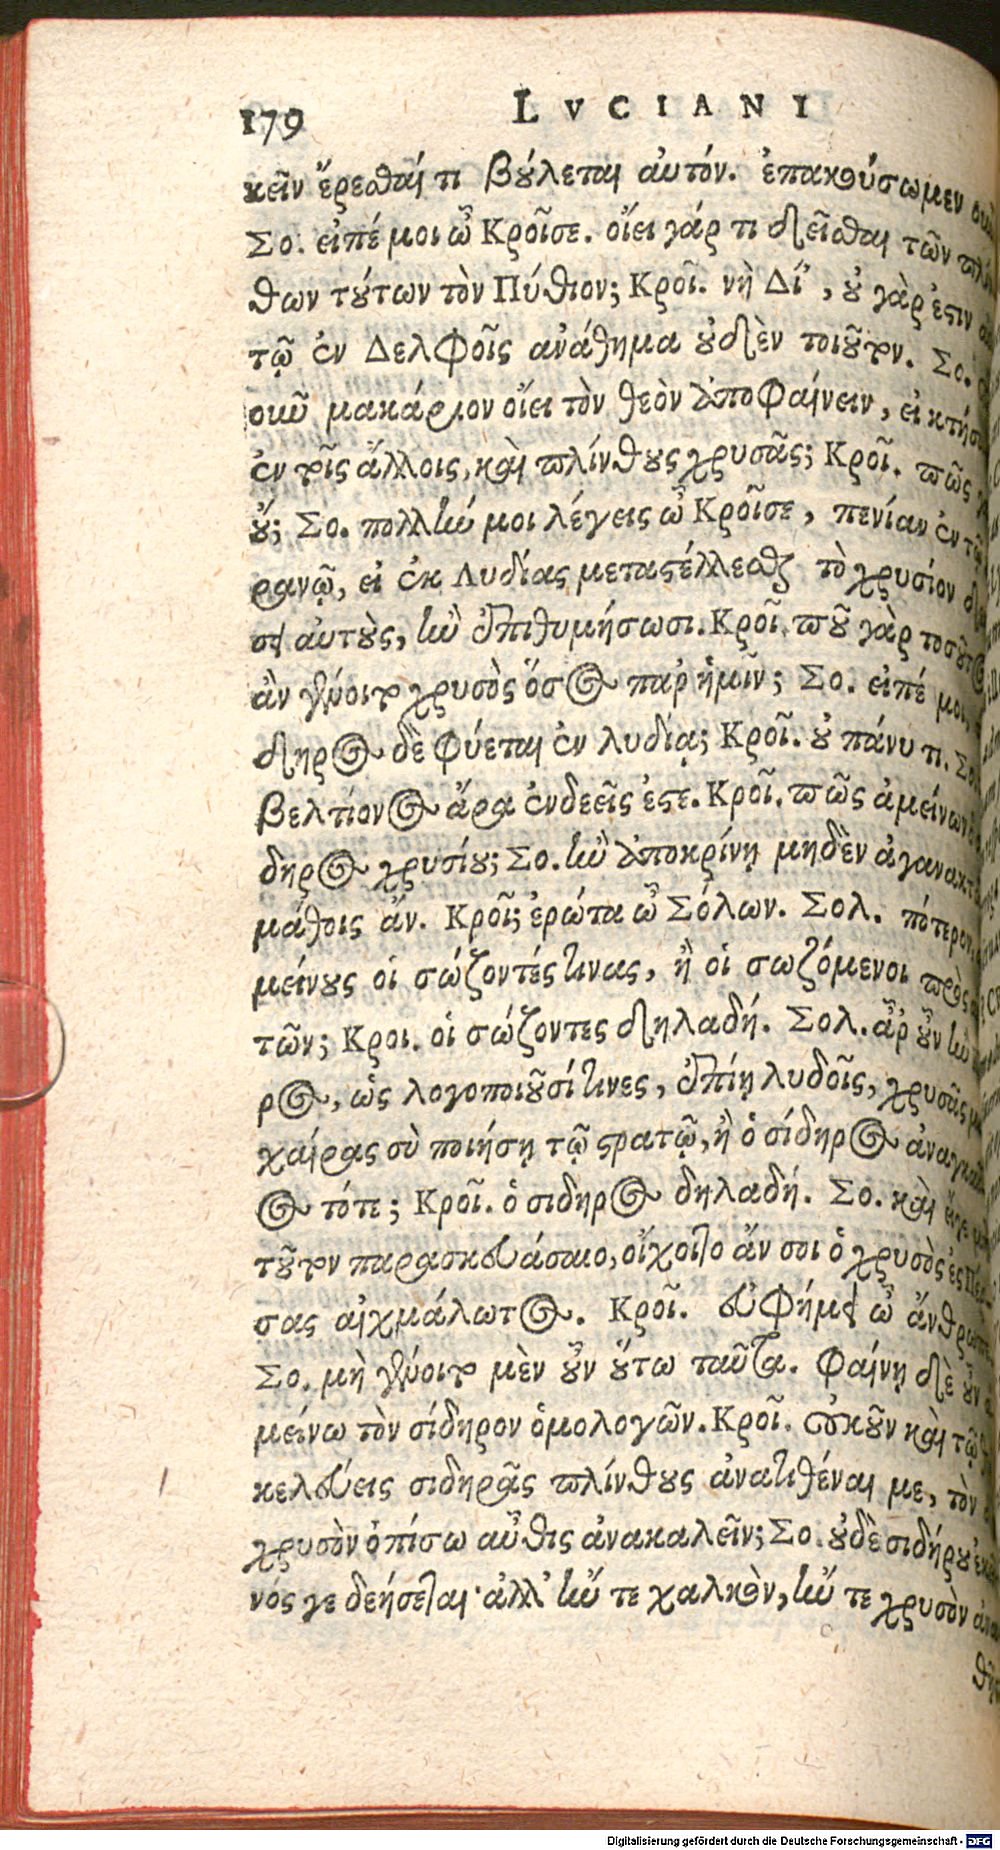 179 LVCIANI
κεῖν ἔρεσθαί τι βούλεται αὐτόν. ἐπακούσωμεν
Σο. εἰπέ μοι ὦ Κροῖσε. οἴει γάρ τι δεῖσθαι τῶν
θων τούτων τὸν Πύθιον; Κροῖ. νὴ Δί', οὐ γὰρ ἐστιν
τῷ ἐν Δελφοῖς ἀνάθημα οὐδὲν τοιοῦτον. Σο.
οὐκοῦν μακάριον οἴει τὸν θεὸν ἀποφαίνειν, εἰ
ἐν τοῖς ἄλλοις, καὶ πλίνθους χρυσᾶς; Κροῖ. πῶς
οὔ; Σο. πολλὴν μοι λέγεις ὦ Κροῖσε, πενίαν ἐν τῷ
ρανῷ, εἰ ἐκ Λυδίας μεταστέλλεσθαι τὸ χρυσίον
σει αὐτοὺς, ἢν ἐπιθυμήσωσι. Κροῖ. ποῦ γὰρ
ἂν γένοιτο χρυσὸς ὅσος παρ' ἡμῖν; Σο. εἰπέ μοι,
δηρος δὲ φύεται ἐν λυδίᾳ; Κροῖ. οὐ πάνυ τι. Σο.
βελτίονος ἄρα ἐνδεεῖς ἐστε. Κροῖ. πῶς ἀμείνων
δηρος χρυσίου; Σο. ἢν ἀποκρίνῃ μηδὲν
μάθοις ἄν. Κροῖ; ἐρώτα ὦ Σόλων. Σολ. πότερον
μείνους οἱ σώζοντές τινας, ἢ οἱ σωζόμενοι πρὸς
τῶν; Κροι. οἱ σώζοντες δηλαδή. Σολ. ἆρ' οὖν ἢν
ρος, ὡς λογοποιοῦσί τινες, ἐπίῃ λυδοῖς, χρυσᾶς
χαίρας σὺ ποιήσῃ τῷ στρατῷ, ἢ ὁ σίδηρος
ος τότε; Κροῖ. ὁ σιδηρος δηλαδή. Σο. καὶ
τοῦτον παρασκευάσαιο, οἴχοιτο ἄν σοι ὁ χρυσὸς ἐς
σας αἰχμάλωτος. Κροῖ. εὐφήμει ὦ ἄνθρωπε.
Σο. μὴ γένοιτο μὲν οὖν οὕτω ταῦτα. Φαίνῃ δὲ οὖν
μείνω τὸν σίδηρον ὁμολογῶν. Κροῖ. οὐκοῦν καὶ τῷ
κελεύεις σιδηρᾶς πλίνθους ἀνατιθέναι με, τὸν
χρυσὸν ὀπίσω αὖθις ἀνακαλεῖν; Σο. οὐδὲ σιδήρου
νός γε δεήσεται· ἀλλ' ἤν τε χαλκὸν, ἤν τε χρυσὸν
Digitalisierung gefördert durch die Deutsche Forschungsgemeinschaft - DFG